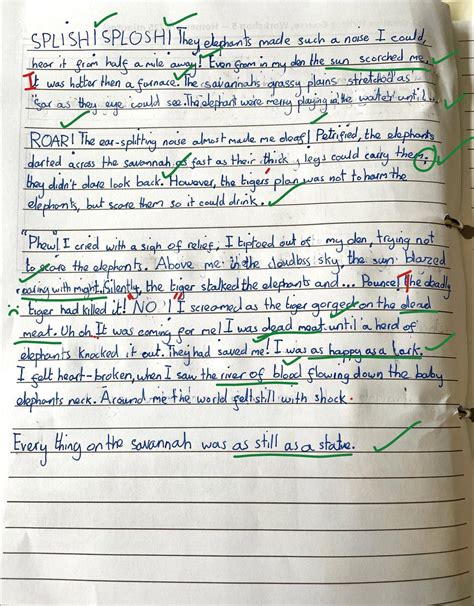 SPLISH! SPLOSH! They elephants made such a noise I could,
hear it from half a mile away! Even from in my den the sun scorched me.
It was hotter then a furnace. The savannahs grassy plains stretched as
"far as they eye could see. The elephant were merry playing in the waters until...
ROAR! The ear-splitting noise almost made me deaf! Petrified, the elephants
darted across the savannah as fast as their thick, legs could carry them;
they didn't dare look back. However, the tigers plan was not to harm the
elephants, but scare them so it could drink.
"Phew! I cried with a sigh of relief, I tiptoed out of my den, trying not
to scare the elephants. Above me in the cloudless sky, the sun blazed
roaring with might. Silently, the tiger stalked the elephants and... Pounce! The deadly
tiger had killed it! "NO!" I screamed as the tiger gorged on the dead
meat. Uh oh. It was coming for me! I was dead meat until a herd of
elephants knocked it out. They had saved me! I was as happy as a lark.
I felt heart-broken, when I saw the river of blood flowing down the baby
elephants neck. Around me the world felt still with shock.
Every thing on the savannah was as still as a statue.